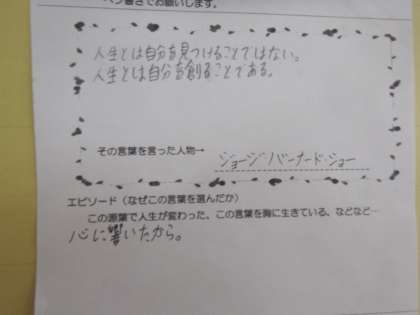 ペン書きでお願いします。
人生とは自分を見つけることではない。
人生とは自分を創ることである。
その言葉を言った人物→
ジョージ・バーナード・ショー
エピソード（なぜこの言葉を選んだか）
この源葉で人生が変わった、この言葉を胸に生きている、などなど…
心に響いたから。